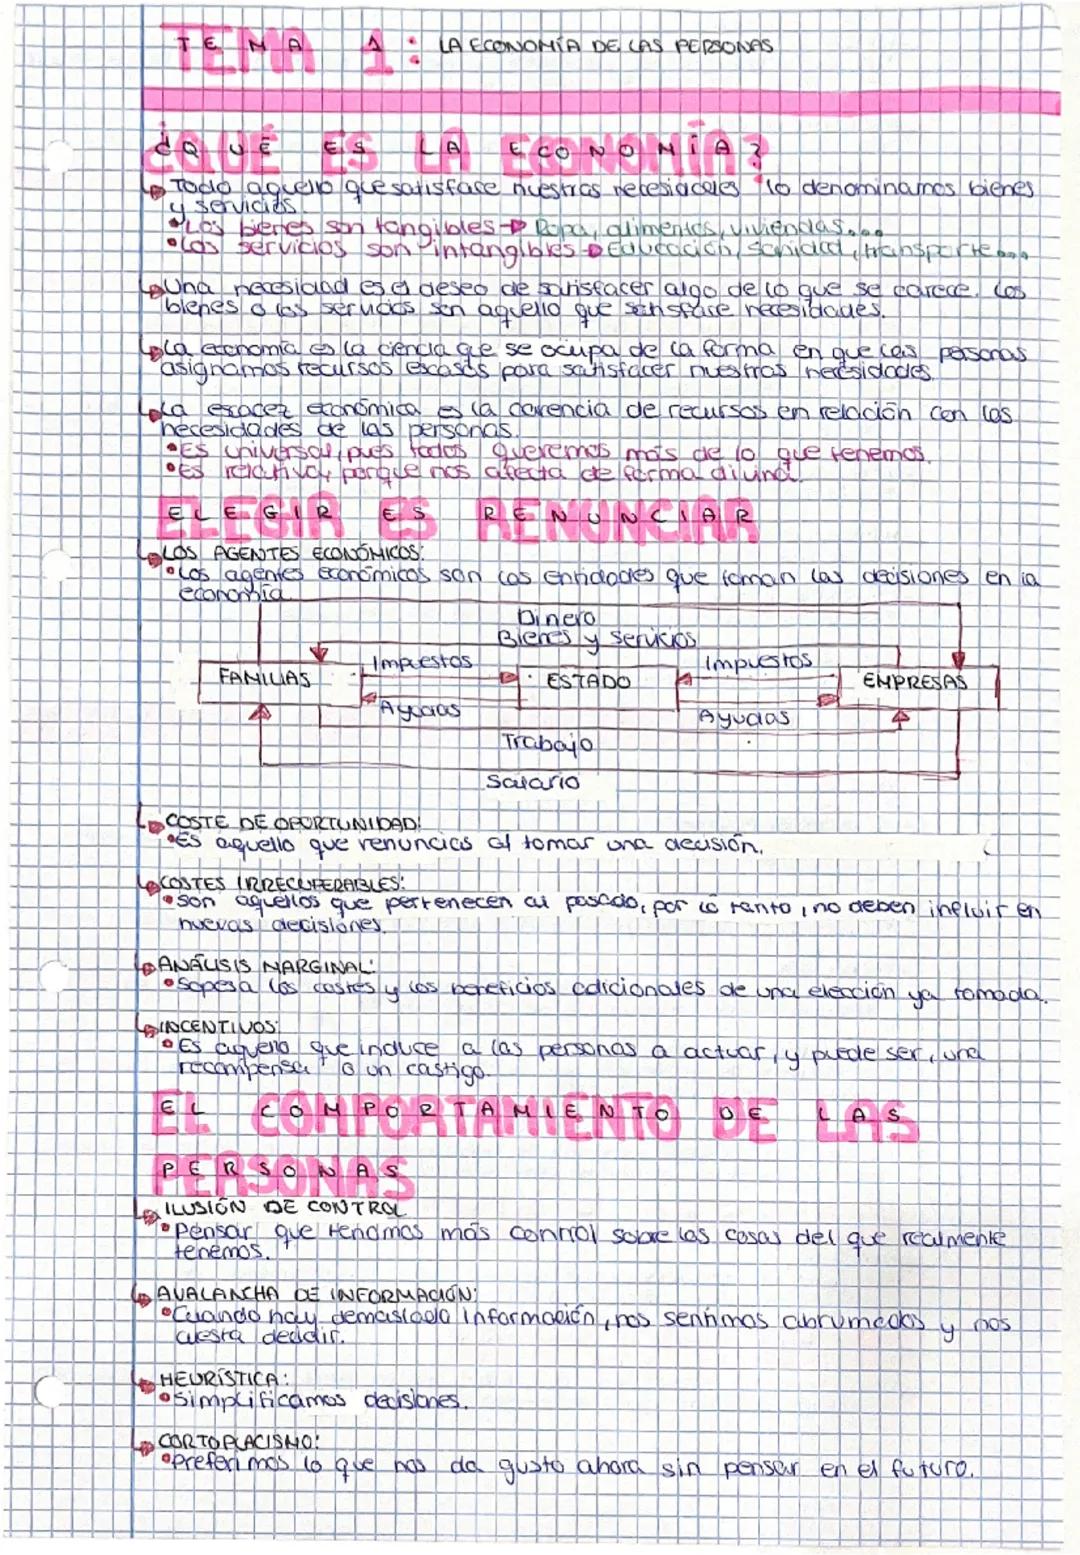 TEMA 1: LA ECONOMÍA DE LAS PERSONAS
¿QUÉ ES LA ECONOMÍA?
Todo aquello que satisface nuestras necesidades lo denominamos bienes
y servicios.
Los bienes son tangibles → Ropa, alimentos, viviendas...
Los servicios son intangibles → Educación, sanidad, transporte...
Una necesidad es el deseo de satisfacer algo de lo que se carece. Los
bienes o los servicios son aquello que satisface necesidades.
La economía es la ciencia que se ocupa de la forma en que las personas
asignamos recursos escasos para satisfacer nuestras necesidades.
La escasez económica es la carencia de recursos en relación con las
necesidades de las personas.
Es universal, pues todos queremos más de lo que tenemos.
Es relativa, porque nos afecta de forma
ELEGIR ES RENUNCIAR
LOS AGENTES ECONÓMICOS:
Los agentes económicos son las entidades que toman las decisiones en la
economía.
Dinero
Bienes y servicios
Impuestos Impuestos
FAMILIAS ESTADO EMPRESAS
Ayudas Ayudas
Trabajo
Salario
COSTE DE OPORTUNIDAD:
Es aquello que renuncias al tomar una decisión.
COSTES IRRECUPERABLES:
Son aquellos que pertenecen al pasado, por lo tanto, no deben influir en
nuevas decisiones.
ANÁLISIS MARGINAL:
Sopesa los costes y los beneficios adicionales de una elección ya tomada.
INCENTIVOS:
Es aquello que induce a las personas a actuar, y puede ser, una
recompensa o un castigo.
EL COMPORTAMIENTO DE LAS
PERSONAS
ILUSIÓN DE CONTROL
Pensar que tenemos más control sobre las cosas del que realmente
tenemos.
AVALANCHA DE INFORMACIÓN:
Cuando hay demasiada información, nos sentimos abrumados y nos
cuesta decidir.
HEURÍSTICA:
Simplificamos decisiones.
CORTOPLACISMO:
Preferimos lo que nos da gusto ahora sin pensar en el futuro.